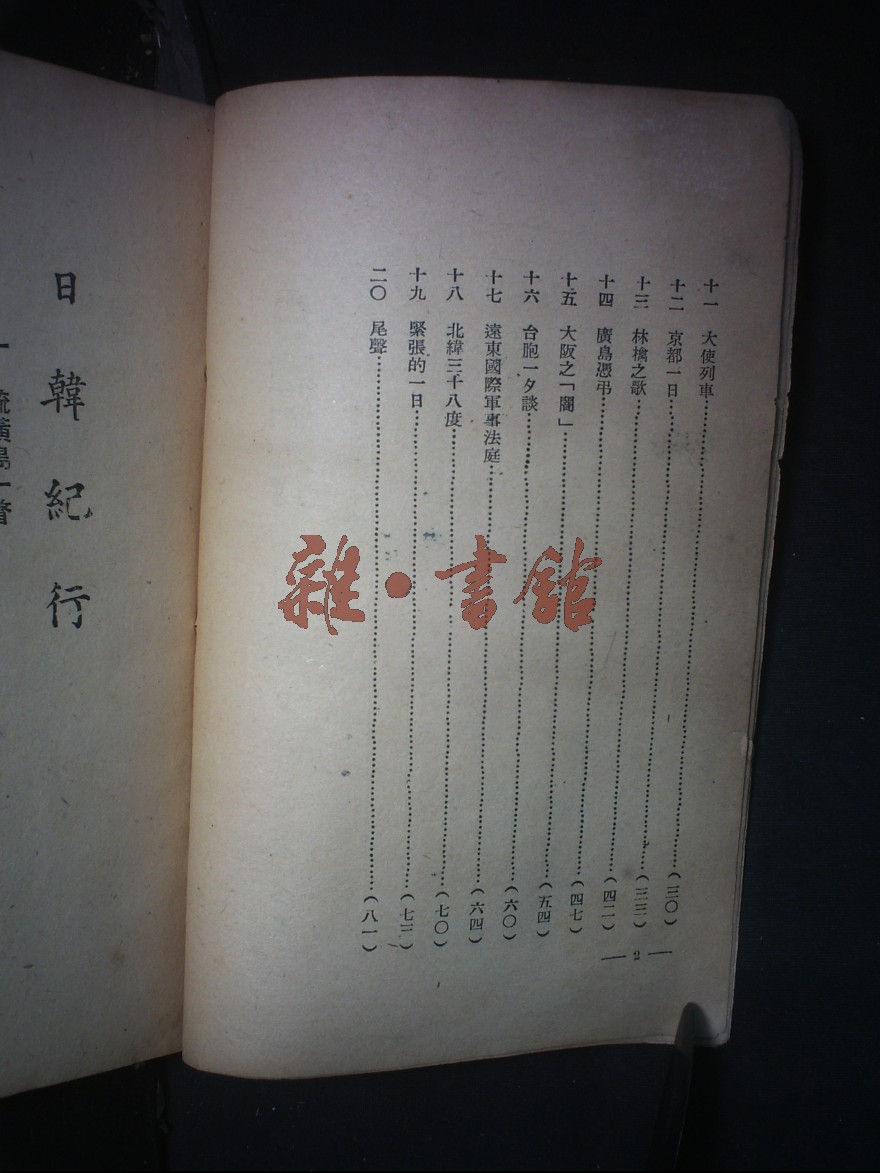 十一 大使列車……(三〇)
十二 京都一日……(三三)
十三 林檎之歌……(四二)
十四 廣島憑弔……(四七)
十五 大阪之「閣」……(五四)
十六 台胞一夕談……(六〇)
十七 遠東國際軍事法庭……(六四)
十八 北緯三十八度……(七〇)
十九 緊張的一日……(七二)
二〇 尾聲……(八一)
— 2 —
雜·書館
日韓紀行
一 硫黃島一瞥